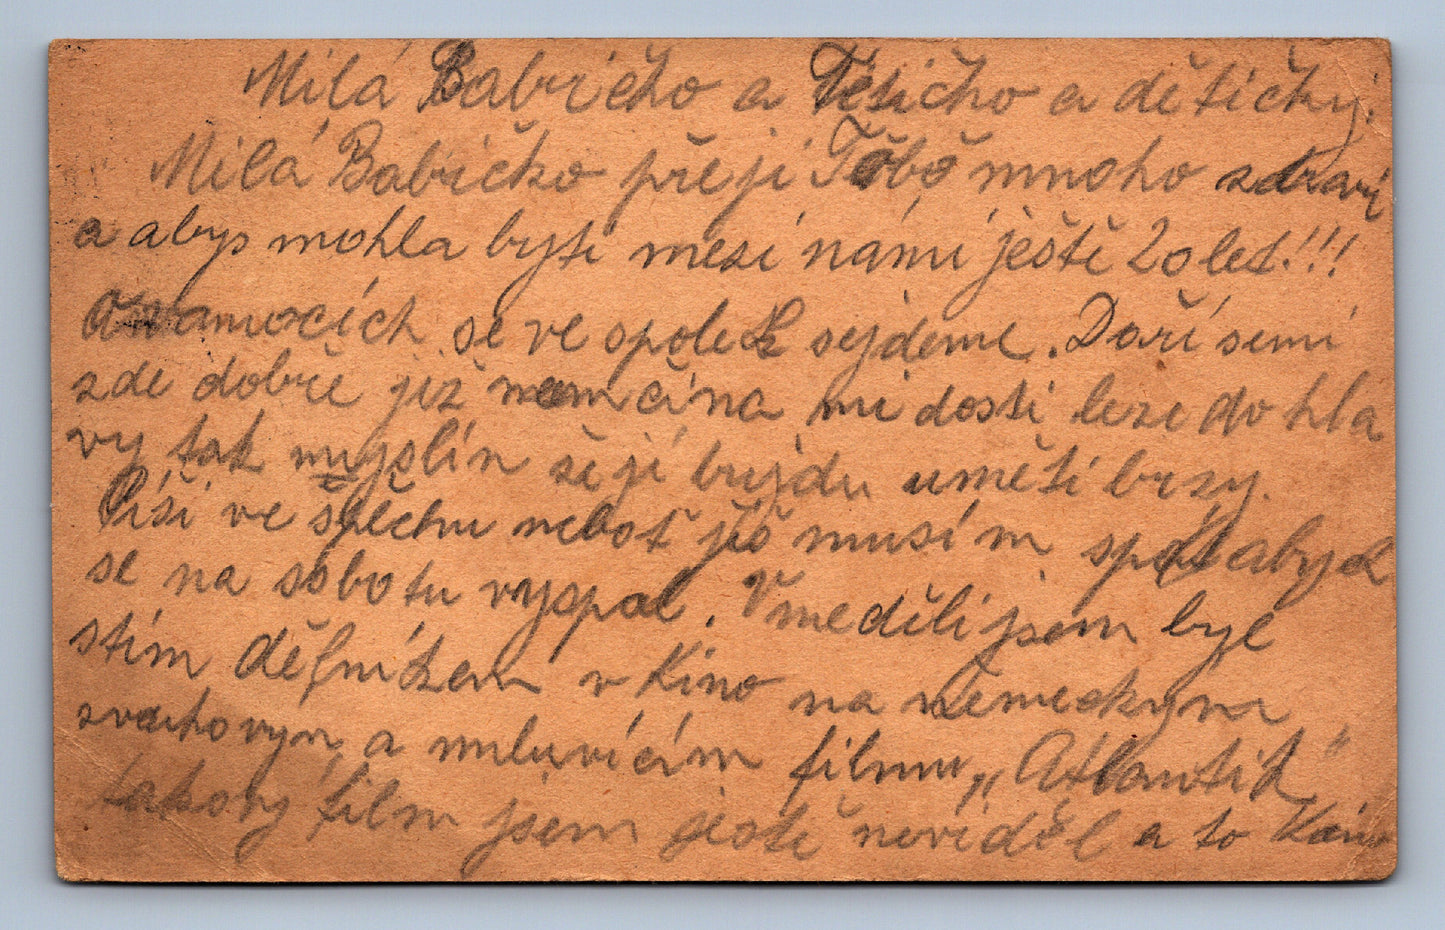 Milá Babičko a Tetičko a dětičky.
Milá Babičko přeji Tobě mnoho zdraví
a abys mohla byti mezi námi ještě 20 let!!!
O vánocích se ve spolek sejdeme. Daří semi
zde dobře již němčina mi dosti leze do hla
vy tak myslín še jí bujdu uměti brzy.
Píši ve spěchu neboť již musím spát abych
se na sobotu vyspal. V neděli jsem byl
stím dělníkem v Kino na německým
zvukovým a mluvícím filmu „Atlantik"
takový film jsem ještě neviděl a to Kino